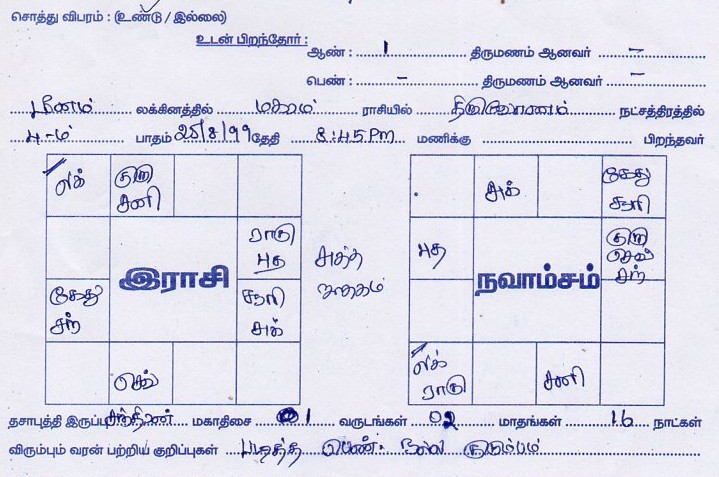 சொத்து விபரம் : (உண்டு / இல்லை)
உடன் பிறந்தோர் :
ஆண் : 1 திருமணம் ஆனவர் –
பெண் : - திருமணம் ஆனவர் –
மீனம் லக்கினத்தில் மகரம் ராசியில் திருவோணம் நட்சத்திரத்தில்
4-ம் பாதம் 25/8/99 தேதி 8:45 Pm மணிக்கு பிறந்தவர்
லக் குரு சனி
ராகு புத
இராசி
கேது சந் சூரி சுக்
செவ்
சுத்த ஜாதகம்
சுக் கேது சூரி
புத குரு செவ் சந்
நவாம்சம்
லக் ராகு சனி
தசாபுத்தி இருப்பு சந்திரன் மகாதிசை 01 வருடங்கள் 02 மாதங்கள் 16 நாட்கள்
விரும்பும் வரன் பற்றிய குறிப்புகள் படித்த பெண். நல்ல குடும்பம்